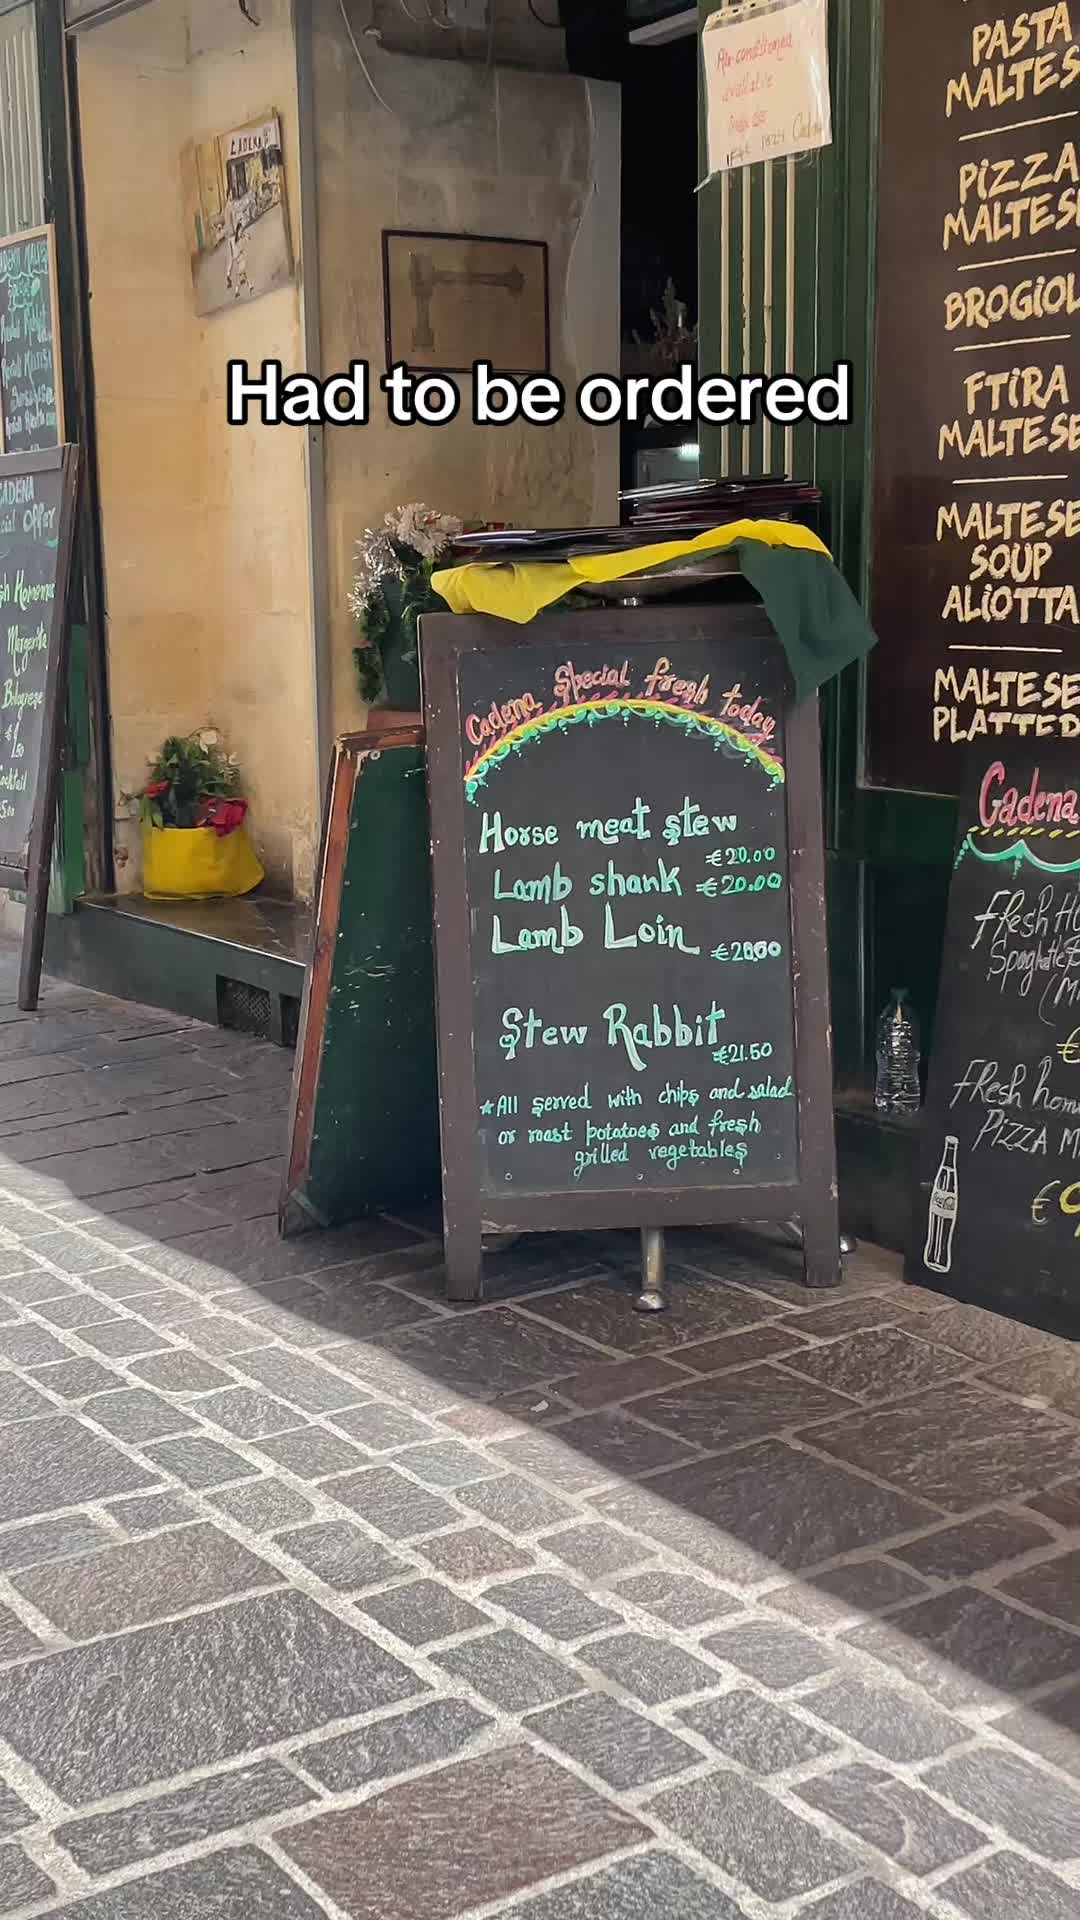 Had to be ordered
CADENA
Air-conditioned
available
PASTA
MALTES
PIZZA
MALTESE
BROGIOL
FTiRA
MALTESE
MALTESE
SOUP
ALiOTTA
MALTESE
PLATTED
Cadena Special fresh today
Horse meat stew
€20.00
Lamb shank €20.00
Lamb Loin
Stew Rabbit
€21.50
★All served with chips and salad
or roast potatoes and fresh
grilled vegetables
Cadena
Fresh
Spaghette
€
Fresh hom
PiZZA M
€9
Coca-Cola
CADENA
cial Offer
sh Homema
Margerita
Bolognese
Cocktail